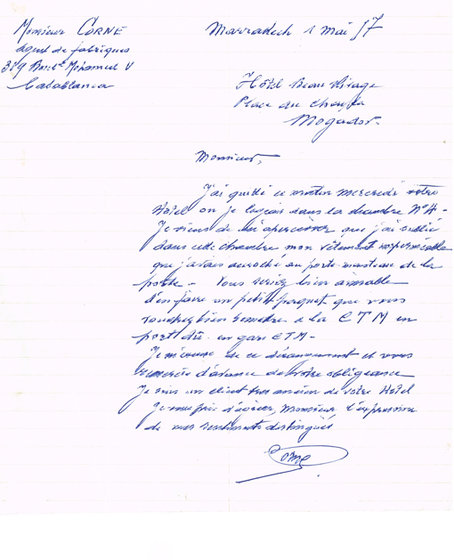 Monsieur CORNE
agent de fabriques
389 Boul. Mohamed V
Casablanca
Marradech 1 Mai 57
Hôtel Beau Rivage
Place du
Mogador.
Monsieur,
J'ai quitté ce matin mercredi votre
Hôtel ou je logeais dans la chambre N° 4.
Je viens de m'apercevoir que j'ai oublié
dans cette chambre mon vêtement imperméable
que j'avais accroché au porte-manteau de la
porte. Vous seriez bien aimable
d'en faire un petit paquet que vous
voudrez bien remettre a la CTM en
port dû. en gare CTM.
Je m'excuse de ce dérangement et vous
remercie d'avance de votre obligeance
Je suis un client très ancien de votre Hôtel
Je vous prie d'agréer, Monsieur l'expression
de mes sentiments distingués
Corne